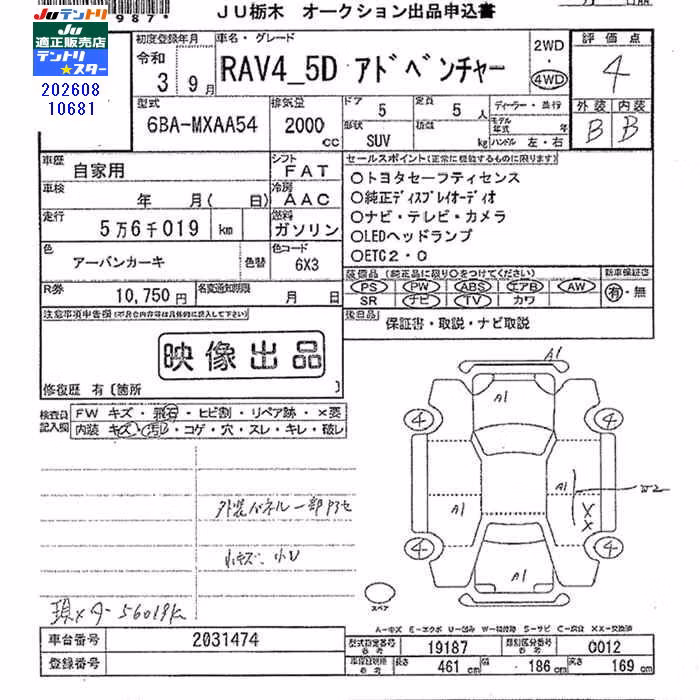 987
JU栃木 オークション出品申込書
JUテントリ
JU
適正販売店
テントリ
スター
202608
10681
初度登録年月
令和
3 9月
車名・グレード
RAV4_5D アドベンチャー
2WD
・
4WD
評価点
4
外装 内装
B B
型式
6BA-MXAA54
排気量
2000 cc
ドア 5
形状 SUV
定員 5 人
積載 kg
ディーラー・並行
モデル年式 年
ハンドル 左・右
車歴 自家用
シフト FAT
車検 年 月( 日)
冷房 AAC
走行 5万6千019 km
燃料 ガソリン
色 アーバンカーキ 色替
色コード 6X3
R券 10,750円
名変通知期限 月 日
セールスポイント(正常に機能するものに限ります)
○トヨタセーフティセンス
○純正ディスプレイオーディオ
○ナビ・テレビ・カメラ
○LEDヘッドランプ
○ETC2・0
装備品(純正品に限り○をつけてください)
PS PW ABS エアB AW
SR ナビ TV カワ
新車保証書
有・無
後日品 保証書・取説・ナビ取説
注意事項申告欄(不具合内容等は具体的に記入して下さい)
映像出品
修復歴 有〔箇所 〕
検査員記入欄
FW キズ・飛石・ヒビ割・リペア跡・×要
内装 キズ・汚レ・コゲ・穴・スレ・キレ・破レ
外装パネル一部
小キズ、小U
56019k
A1
A1
4 4
A1 A1 W2
X
X
4 4
A1
スペア
A-キズ E-エクボ U-凹み W-補修跡 S-サビ C-腐食 XX-交換済
車台番号 2031474
登録番号
型式指定番号 参考 19187
類別区分番号 参考 0012
車検証明細 参考 長さ 461 cm 幅 186 cm 高さ 169 cm